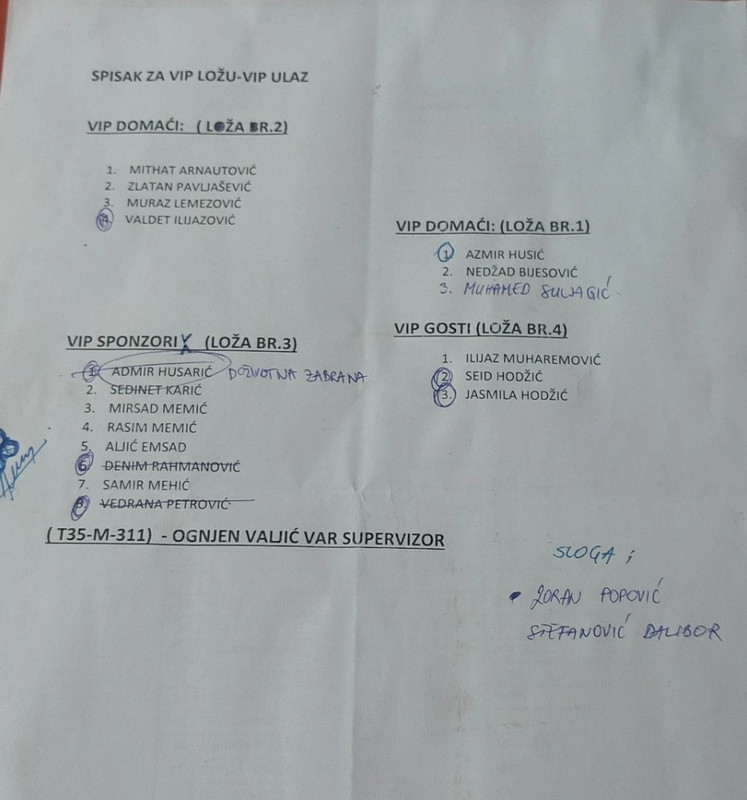 SPISAK ZA VIP LOŽU-VIP ULAZ
VIP DOMAĆI: ( LOŽA BR.2)
1. MITHAT ARNAUTOVIĆ
2. ZLATAN PAVLJAŠEVIĆ
3. MURAZ LEMEZOVIĆ
4. VALDET ILIJAZOVIĆ
VIP DOMAĆI: (LOŽA BR.1)
1. AZMIR HUSIĆ
2. NEDŽAD BIJESOVIĆ
3. MUHAMED SULJAGIĆ
VIP SPONZORI (LOŽA BR.3)
1. ADMIR HUSARIĆ DOŽIVOTNA ZABRANA
2. SEDINET KARIĆ
3. MIRSAD MEMIĆ
4. RASIM MEMIĆ
5. ALJIĆ EMSAD
6. DENIM RAHMANOVIĆ
7. SAMIR MEHIĆ
8. VEDRANA PETROVIĆ
VIP GOSTI (LOŽA BR.4)
1. ILIJAZ MUHAREMOVIĆ
2. SEID HODŽIĆ
3. JASMILA HODŽIĆ
( T35-M-311) - OGNJEN VALJIĆ VAR SUPERVIZOR
SLOGA ;
• ZORAN POPOVIĆ
STEFANOVIĆ DALIBOR